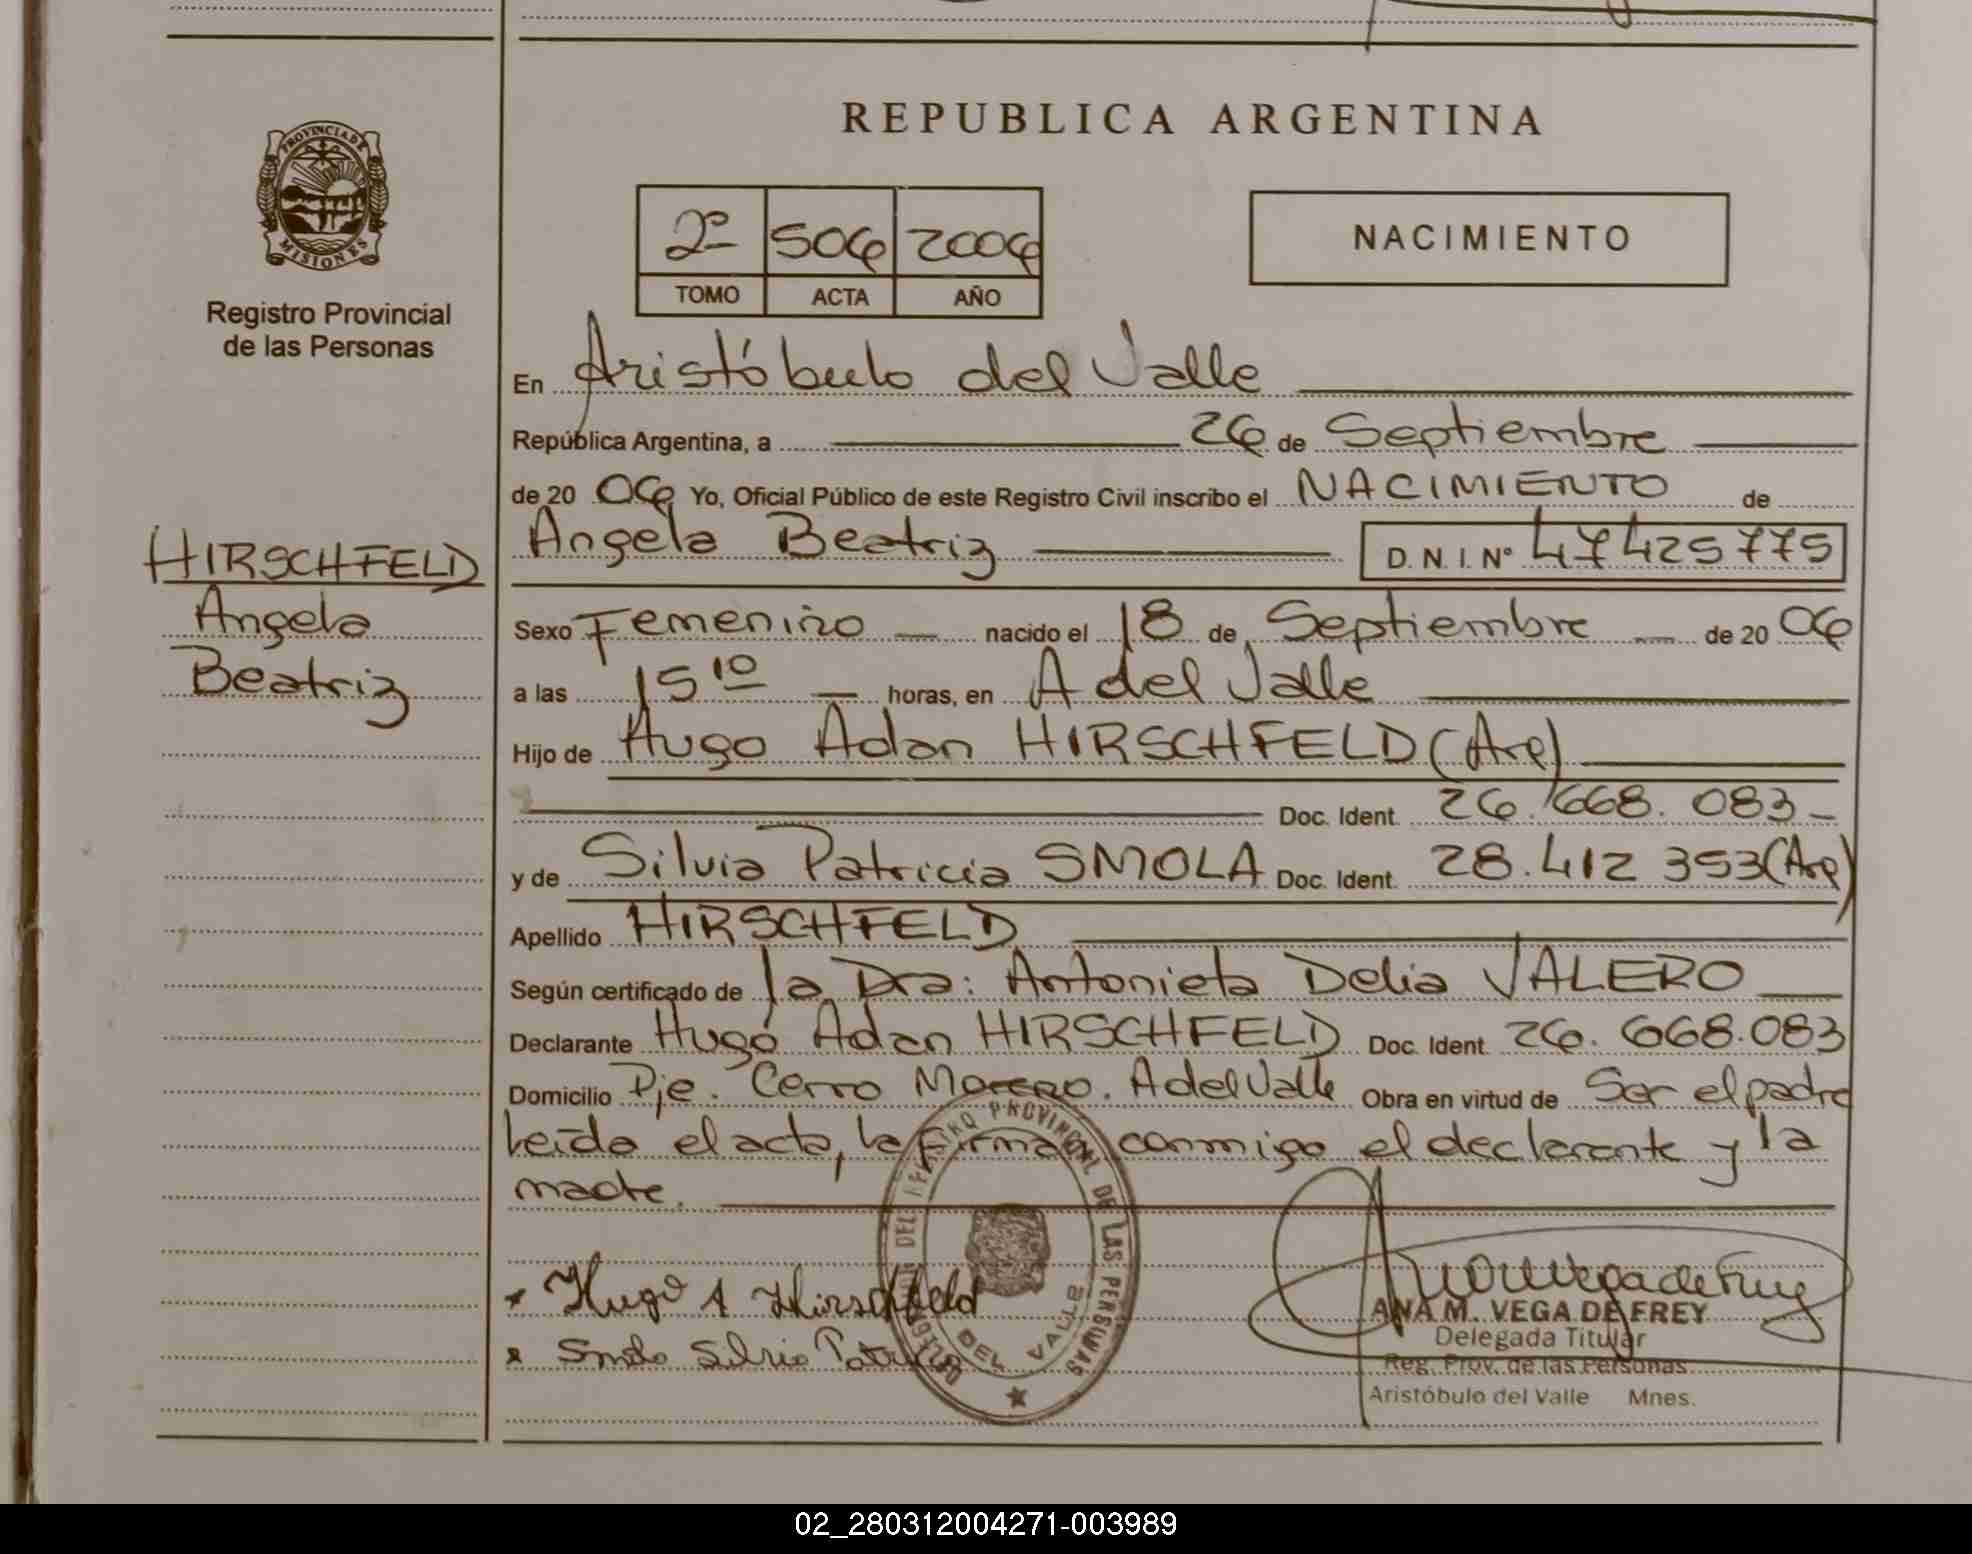 REPUBLICA ARGENTINA
PROVINCIA DE
MISIONES
Registro Provincial
de las Personas
2º 506 2006
TOMO ACTA AÑO
NACIMIENTO
En Aristóbulo del Valle
República Argentina, a 26 de Septiembre
de 20 06 Yo, Oficial Público de este Registro Civil inscribo el NACIMIENTO de
HIRSCHFELD
Angela
Beatriz
Angela Beatriz D. N. I. Nº 47425775
Sexo Femenino nacido el 18 de Septiembre de 20 06
a las 15 10 horas, en A del Valle
Hijo de Hugo Adan HIRSCHFELD (Arg)
Doc. Ident. 26.668.083
y de Silvia Patricia SMOLA Doc. Ident. 28.412 353 (Arg)
Apellido HIRSCHFELD
Según certificado de la Dra: Antonieta Delia VALERO
Declarante Hugo Adan HIRSCHFELD Doc. Ident. 26.668.083
Domicilio Pje. Cerro Moreno. A del Valle Obra en virtud de Ser el padre
Leída el acta, la firman conmigo el declarante y la
madre.
Hugo A Hirschfeld
Smola Silvia
REGISTRO PROVINCIAL DE LAS PERSONAS
DEL VALLE
ANA M. VEGA DE FREY
Delegada Titular
Reg. Prov. de las Personas
Aristóbulo del Valle Mnes.
02_280312004271-003989